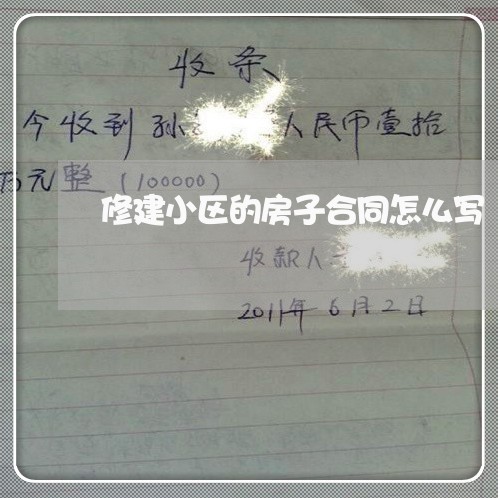 收条
今收到孙 人民币壹拾
万元整（100000）
修建小区的房子合同怎么写
收款人
2011年6月2日